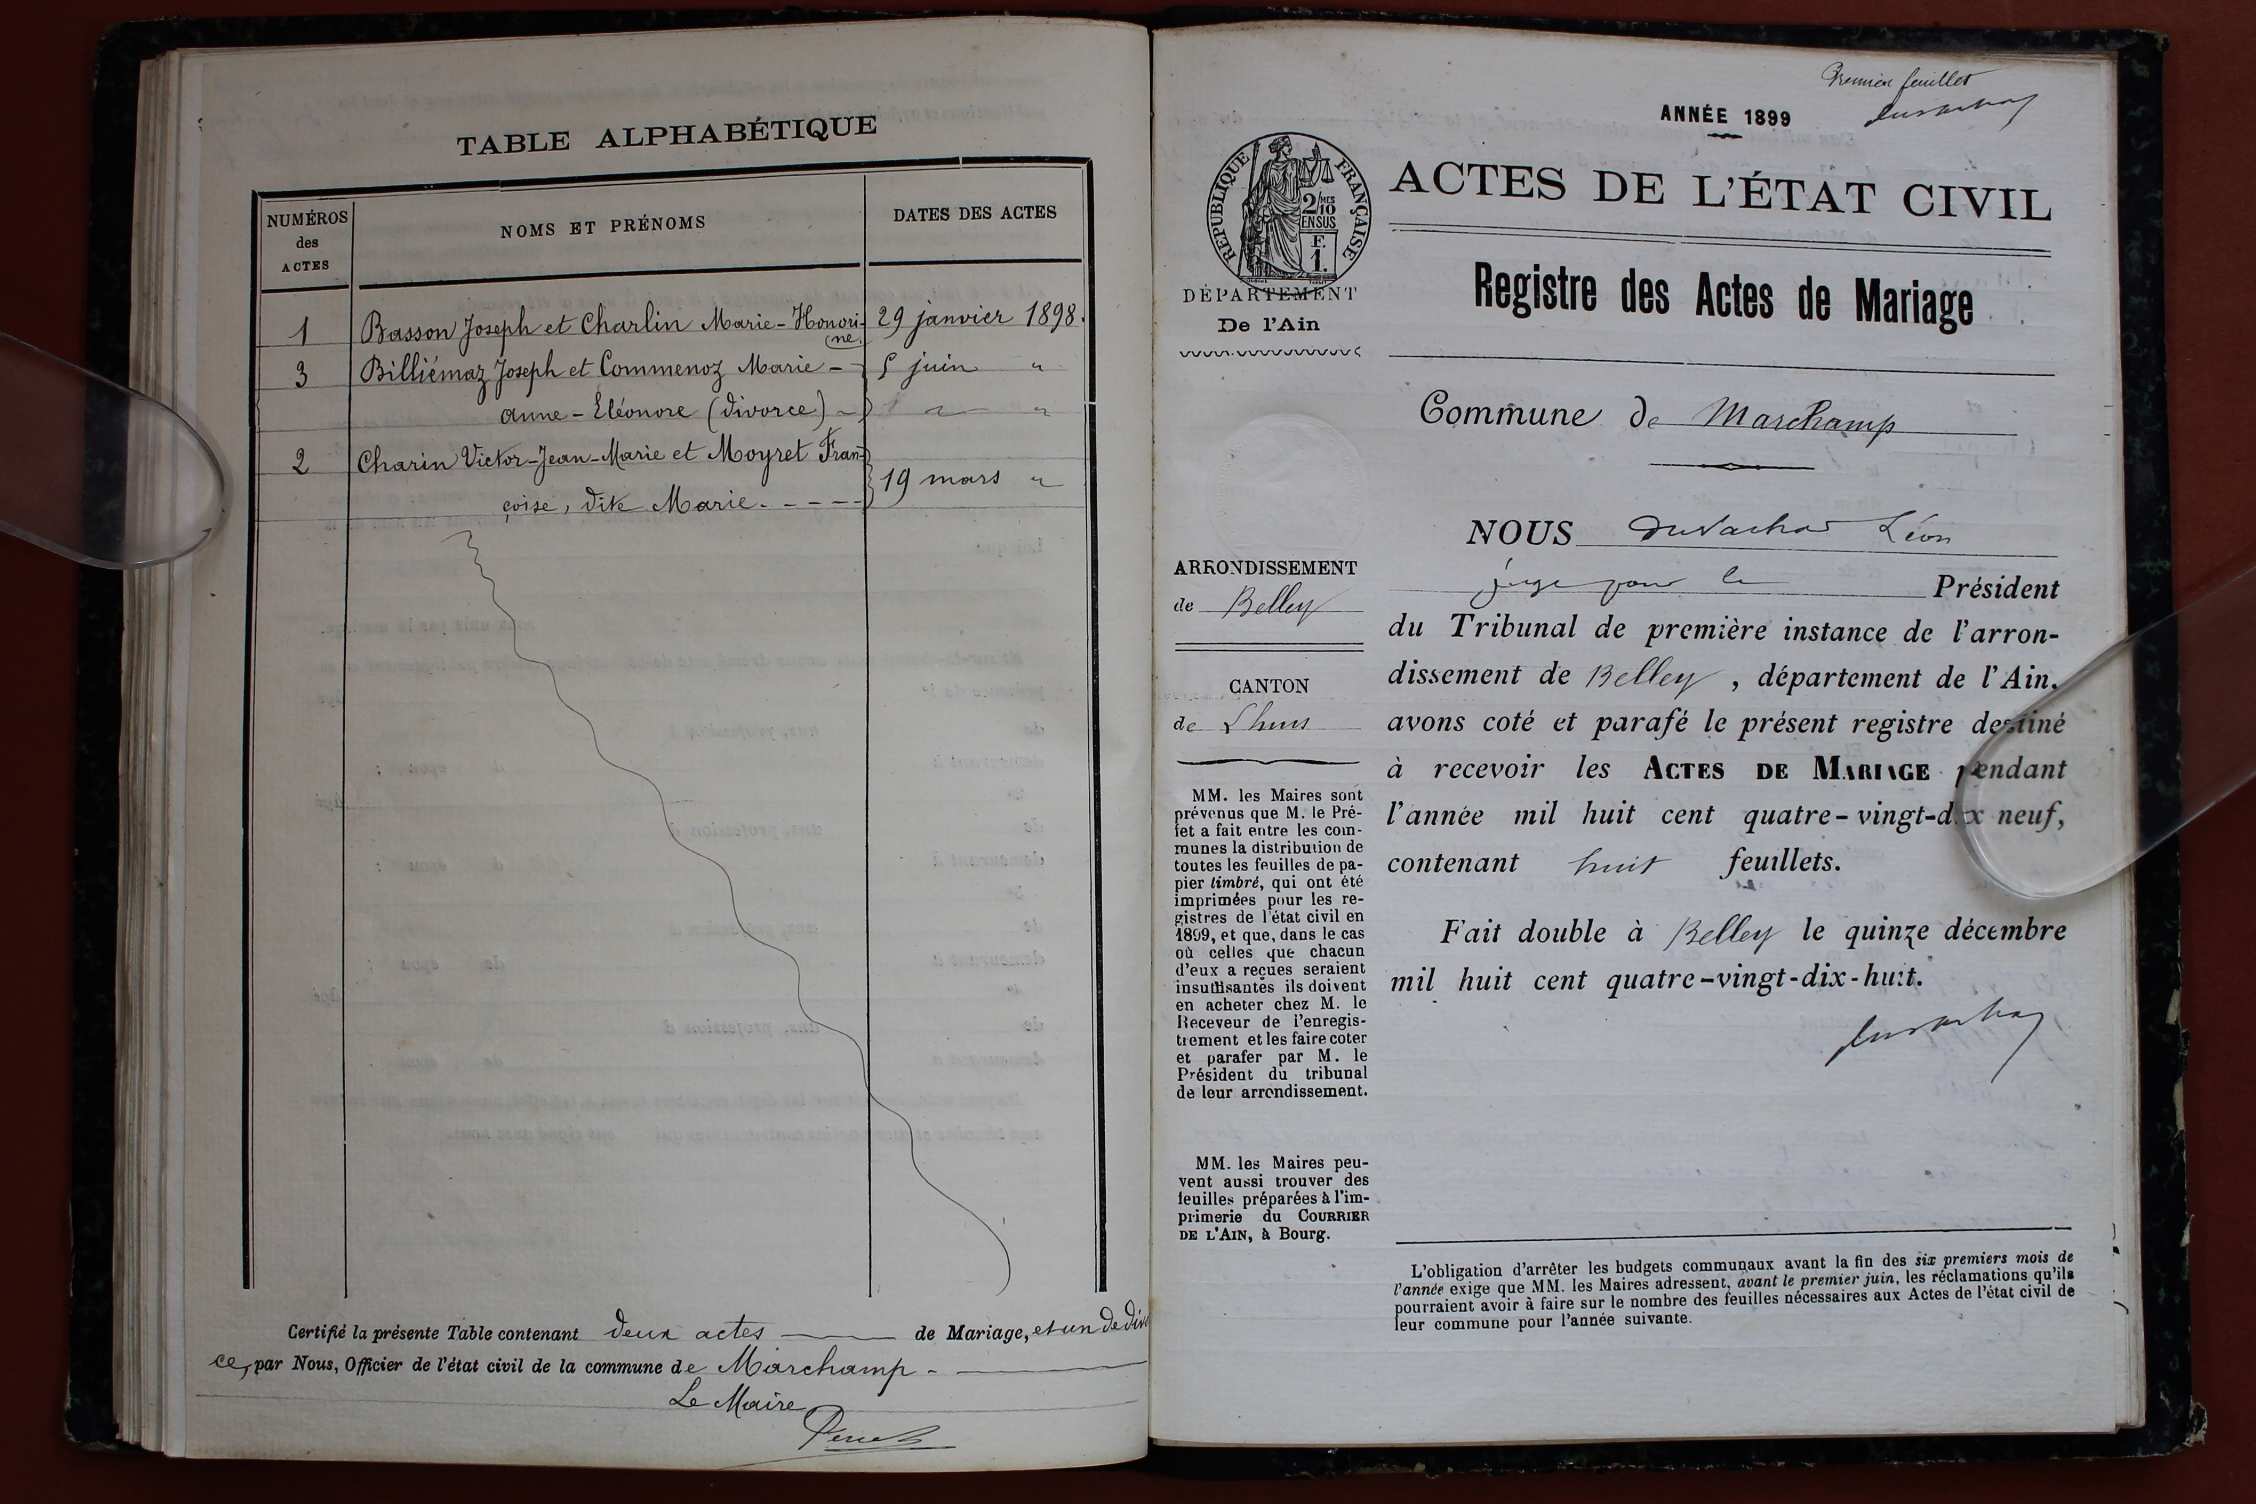 TABLE ALPHABÉTIQUE
NUMÉROS
des
ACTES
NOMS ET PRÉNOMS
DATES DES ACTES
1 Basson Joseph et Charlin Marie-Honori- 29 janvier 1898.
ne.
3 Billiémaz Joseph et Commenoz Marie - 5 juin "
Anne-Eléonore (divorce) - " "
2 Charin Victor-Jean-Marie et Moyret Fran-
çoise, dite Marie. - - - - 19 mars "
Certifié la présente Table contenant deux actes de Mariage, et un de divor
ce, par Nous, Officier de l'état civil de la commune de Marchamp -
Le Maire
Premier feuillet
ANNÉE 1899
RÉPUBLIQUE FRANÇAISE
2/10 MES
EN SUS
F.
1.
DÉPARTEMENT
De l'Ain
ACTES DE L'ÉTAT CIVIL
Registre des Actes de Mariage
Commune de Marchamp
ARRONDISSEMENT
de Belley
CANTON
de Lhuis
MM. les Maires sont
prévenus que M. le Pré-
fet a fait entre les com-
munes la distribution de
toutes les feuilles de pa-
pier timbré, qui ont été
imprimées pour les re-
gistres de l'état civil en
1899, et que, dans le cas
où celles que chacun
d'eux a reçues seraient
insuffisantes ils doivent
en acheter chez M. le
Receveur de l'enregis-
trement et les faire coter
et parafer par M. le
Président du tribunal
de leur arrondissement.
MM. les Maires peu-
vent aussi trouver des
feuilles préparées à l'im-
primerie du COURRIER
DE L'AIN, à Bourg.
NOUS Léon
juge pour le Président
du Tribunal de première instance de l'arron-
dissement de Belley, département de l'Ain.
avons coté et parafé le présent registre destiné
à recevoir les ACTES DE MARIAGE pendant
l'année mil huit cent quatre-vingt-dix neuf,
contenant huit feuillets.
Fait double à Belley le quinze décembre
mil huit cent quatre-vingt-dix-huit.
L'obligation d'arrêter les budgets communaux avant la fin des six premiers mois de
l'année exige que MM. les Maires adressent, avant le premier juin, les réclamations qu'ils
pourraient avoir à faire sur le nombre des feuilles nécessaires aux Actes de l'état civil de
leur commune pour l'année suivante.